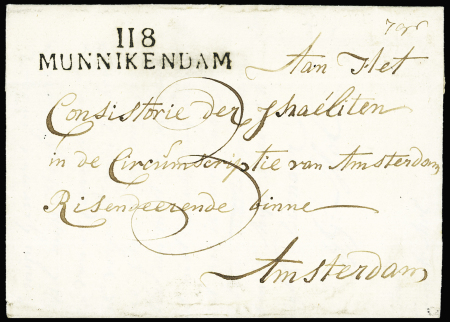 118
MUNNIKENDAM
Aan Het
Consistorie der Israéliten
in de Circumscriptie van Amsterdam
Risendeerende binne
Amsterdam
3